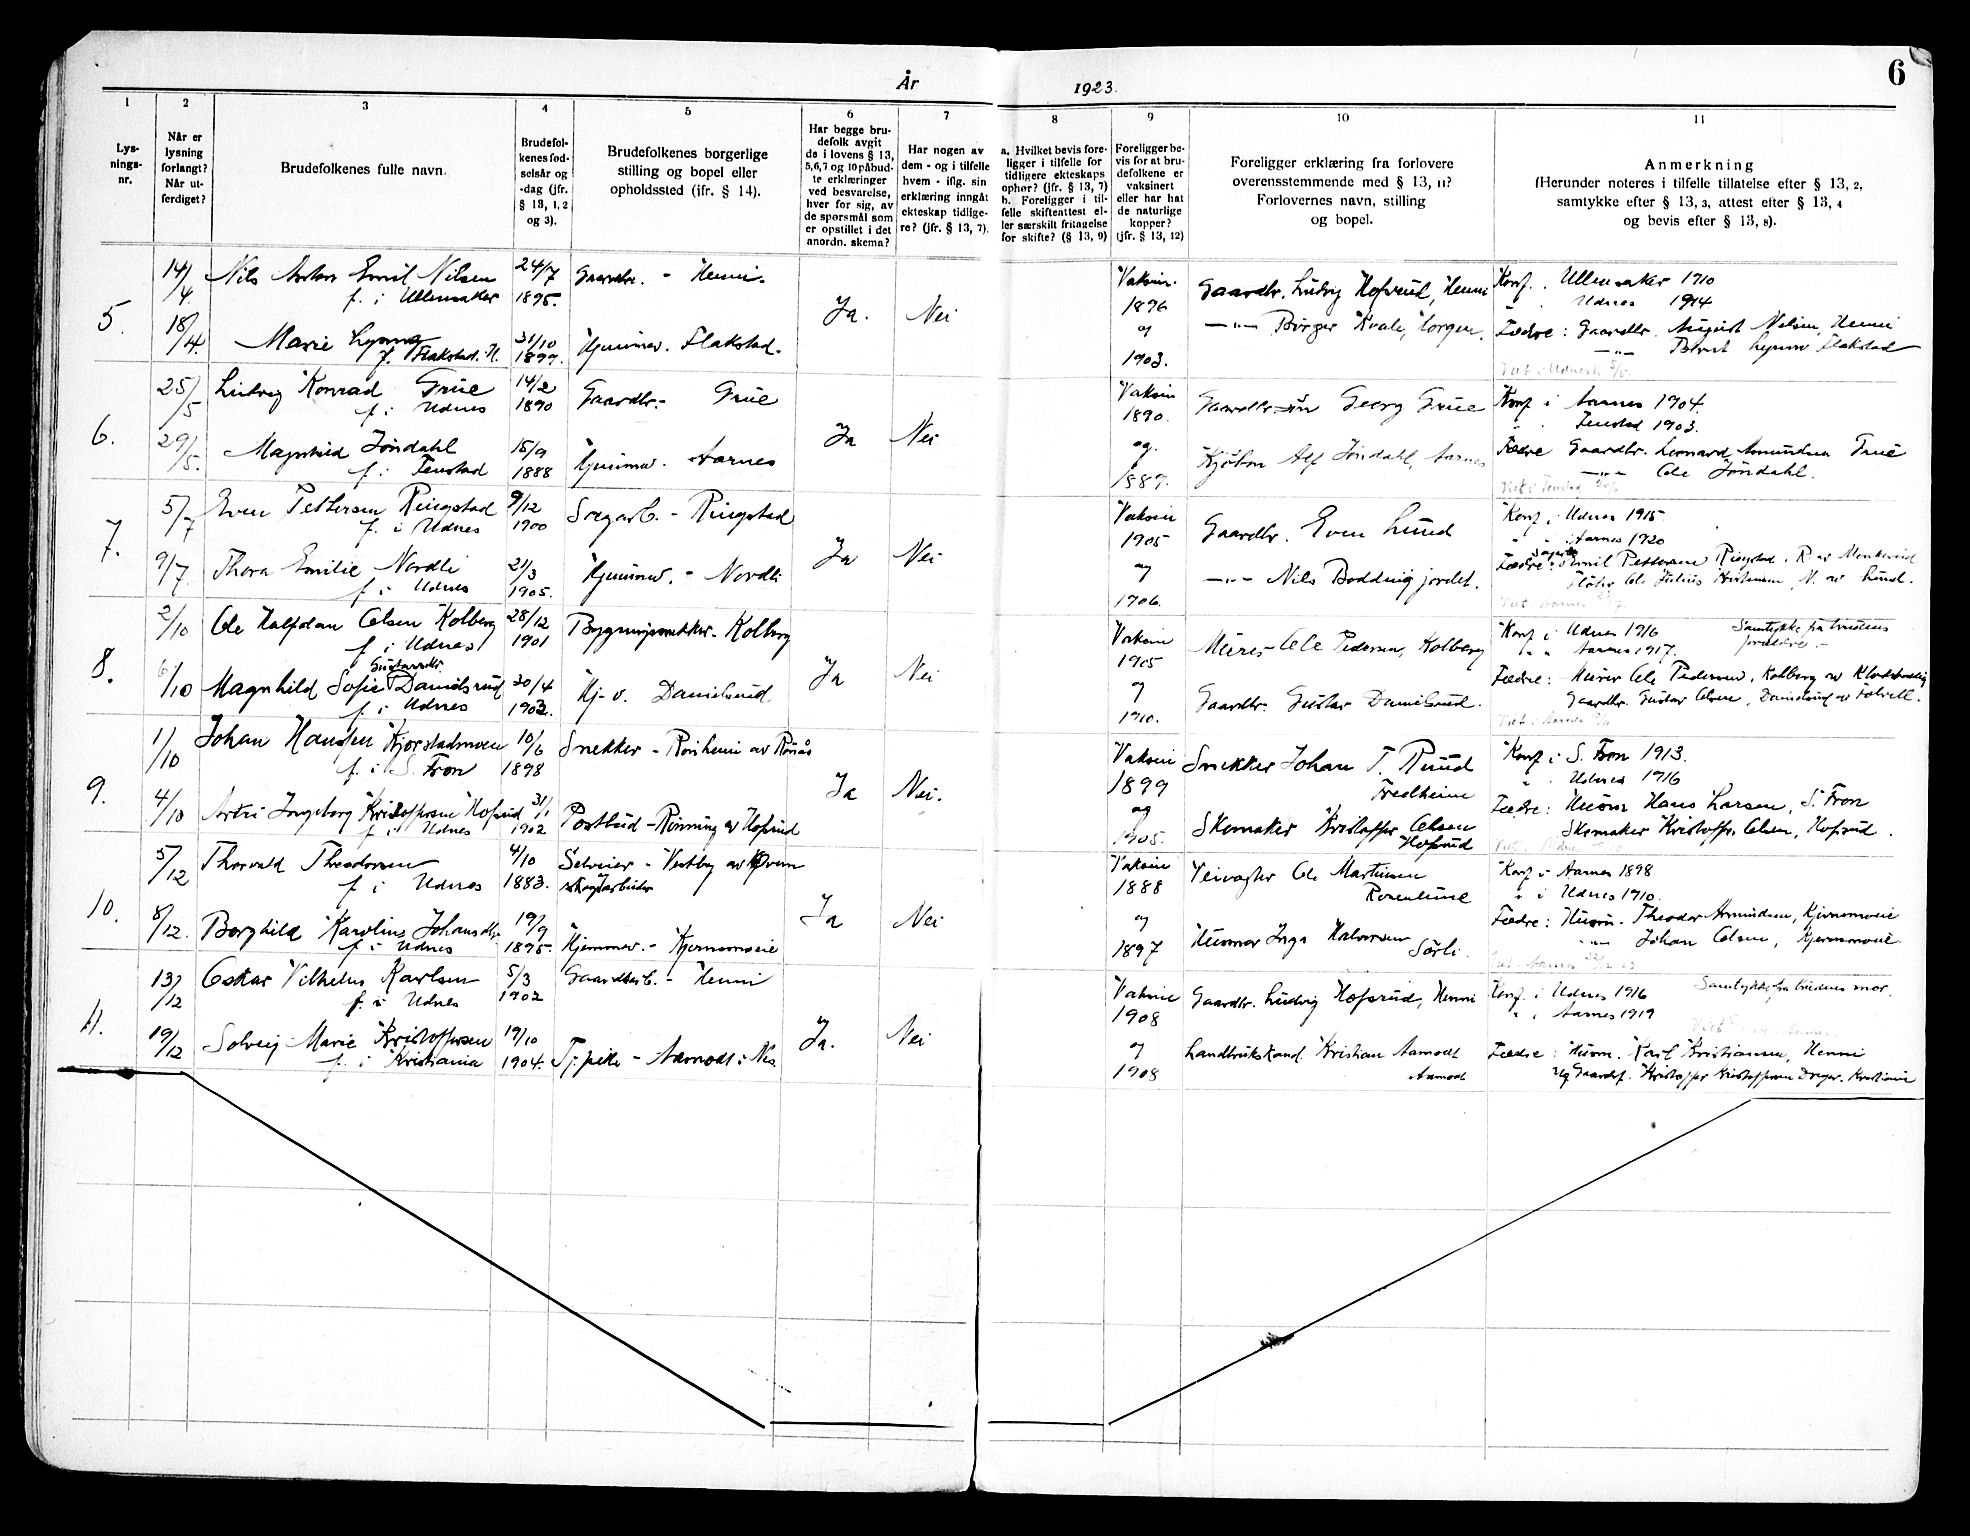 År 1923.
6
1 2 3 4 5 6 7 8 9 10 11
Lys-
nings-
nr.
Når er
lysning
forlangt?
Når ut-
ferdiget?
Brudefolkenes fulle navn.
Brudefol-
kenes fød-
selsår og
-dag (jfr.
§ 13, 1, 2
og 3).
Brudefolkenes borgerlige
stilling og bopel eller
opholdssted (ifr. § 14).
Har begge bru-
defolk avgit
de i lovens § 13,
5,6,7 og 10 påbud-
te erklæringer
ved besvarelse,
hver for sig, av
de spørsmål som
er opstillet i det
anordn. skema?
Har nogen av
dem - og i tilfelle
hvem - iflg. sin
erklæring inngåt
ekteskap tidlige-
re? (jfr. § 13, 7).
a. Hvilket bevis fore-
ligger i tilfelle for
tidligere ekteskaps
ophør? (jfr. § 13, 7)
b. Foreligger i til-
felle skifteattest el-
ler særskilt fritagelse
for skifte? (§ 13, 9)
Foreligger be-
vis for at bru-
defolkene er
vaksinert
eller har hat
de naturlige
kopper?
(jfr. § 13, 12)
Foreligger erklæring fra forlovere
overensstemmende med § 13, 11?
Forlovernes navn, stilling
og bopel.
Anmerkning
(Herunder noteres i tilfelle tillatelse efter § 13, 2,
samtykke efter § 13, 3, attest efter § 13, 4
og bevis efter § 13, 8).
5. 14/4. 18/4.
Nils Anton Emil Nilsen 24/7 Gaardbr. - Henni.
f. i Ullensaker 1895.
Marie 31/10 Hjemmev. Flakstad.
f. Flakstad. 1899.
Ja. Nei
Vaksin. 1896 og 1903.
Gaardbr. Ludvig Hofsrud, Henni
—"— Børger Kvale,
Konf. i Ullensaker 1910
" Udnes 1914
Fædre: Gaardbr. August Nilsen, Henni
—"— Flakstad
6. 25/5 29/5.
Ludvig Konrad Grue 14/2 Gaardbr. - Grue
f. i Udnes 1890
Magnhild Jøndahl 15/9 Hjemmev. Aarnes
f. i Fenstad 1888
Ja Nei
Vaksin 1890. og. 1889.
Georg Grue
Alf Jøndahl, Aarnes
Konf i Aarnes 1904.
" Fenstad 1903.
Fædre Gaardbr. Leonard Amundsen Grue
—"— Ole Jøndahl.
7. 5/7 9/7
Even Pettersen Ringstad 9/12 Sagarb. - Ringstad
f. i Udnes 1900
Thora Emilie Nordli 21/3 Hjemmev. - Nordli
f. i Udnes 1905.
Ja Nei
Vaksin 1905 og 1906.
Gaardbr. Even Lund
—"— Nils Boddingjordet.
Konf i Udnes 1915
" " Aarnes 1920
Fædre: Emil Pettersen Ringstad, R. av
Ole Julius Kristensen, N. av Lund.
8. 2/10 6/10
Ole Halfdan Olsen Kolberg 28/12 Bygningssnekker - Kolberg
f. i Udnes 1901
Gustavsdtr
Magnhild Sofie Danielsrud 30/4 Hj. v. Danielsrud
f. i Udnes 1902.
Ja Nei
Vaksin 1905 og 1910.
Murer - Ole Pedersen, Kolberg
Gaardbr. Gustav Danielsrud.
Konf i Udnes 1916 Samtykke fra brudens
" " Aarnes 1917. foreldre. -
Fædre: Murer Ole Pedersen, Kolberg av
Gaardbr. Gustav Olsen, Danielsrud av
9. 1/10 4/10
Johan Hansen Kjorstadmoen 10/6 Snekker - Rønheim av Rønås
f. i S. Fron 1898
Astri Ingeborg Kristoffersen Hofsrud 31/1 Postbud - Rønning av Hofsrud
f. i Udnes 1902
Ja Nei.
Vaksin 1899 og 1905.
Snekker Johan T. Ruud
Fredheim
Skomaker Kristoffer Olsen
Hofsrud
Konf i S. Fron 1913.
" Udnes 1916
Fædre: Husm. Hans Larsen, S. Fron
Skomaker Kristoffer Olsen, Hofsrud.
10. 5/12 8/12.
Thorvald Theodorsen 4/10 Selveier - Vestby av Hvam
f i Udnes 1883. skogsarbeider
Borghild Karoline Johansdtr. 19/9 Hjemmev. -
f. i Udnes 1895.
Ja Nei
Vaksin 1888 og 1897
Veivogter Ole Martinsen
Rosenlund
Husmor Inga Halvorsen Sørli.
Konf i Aarnes 1898
" i Udnes 1910.
Fædre: Husm. Theodor Amundsen,
—"— Johan Olsen,
11. 13/12 19/12
Oskar Vilhelm Karlsen 5/3 Gaardarb. - Henni
f. i Udnes 1902
Solveig Marie Kristoffersen 19/10 Tj. pike - Aamodt i Nes
f. i Kristiania 1904.
Ja. Nei
Vaksin 1908 og 1908
Gaardbr. Ludvig Hofsrud, Henni
Landbrukskand. Kristian Aamodt
Aamodt
Konf. i Udnes 1916 Samtykke fra brudens mor.
" i Aarnes 1919
Fædre: Husm. Karl Kristiansen, Henni
Kristoffer Kristoffersen Kristiania